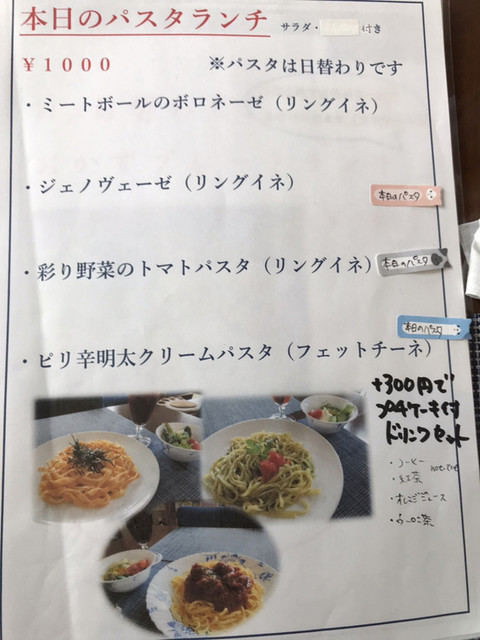 本日のパスタランチ サラダ・ 付き
¥1000 ※パスタは日替わりです
・ミートボールのボロネーゼ（リングイネ）
・ジェノヴェーゼ（リングイネ）
本日のパスタ
・彩り野菜のトマトパスタ（リングイネ）
本日のパスタ
本日のパスタ
・ピリ辛明太クリームパスタ（フェットチーネ）
+300円で
プチケーキ付
ドリンクセット
・コーヒー
・紅茶
・オレンジジュース
・ウーロン茶